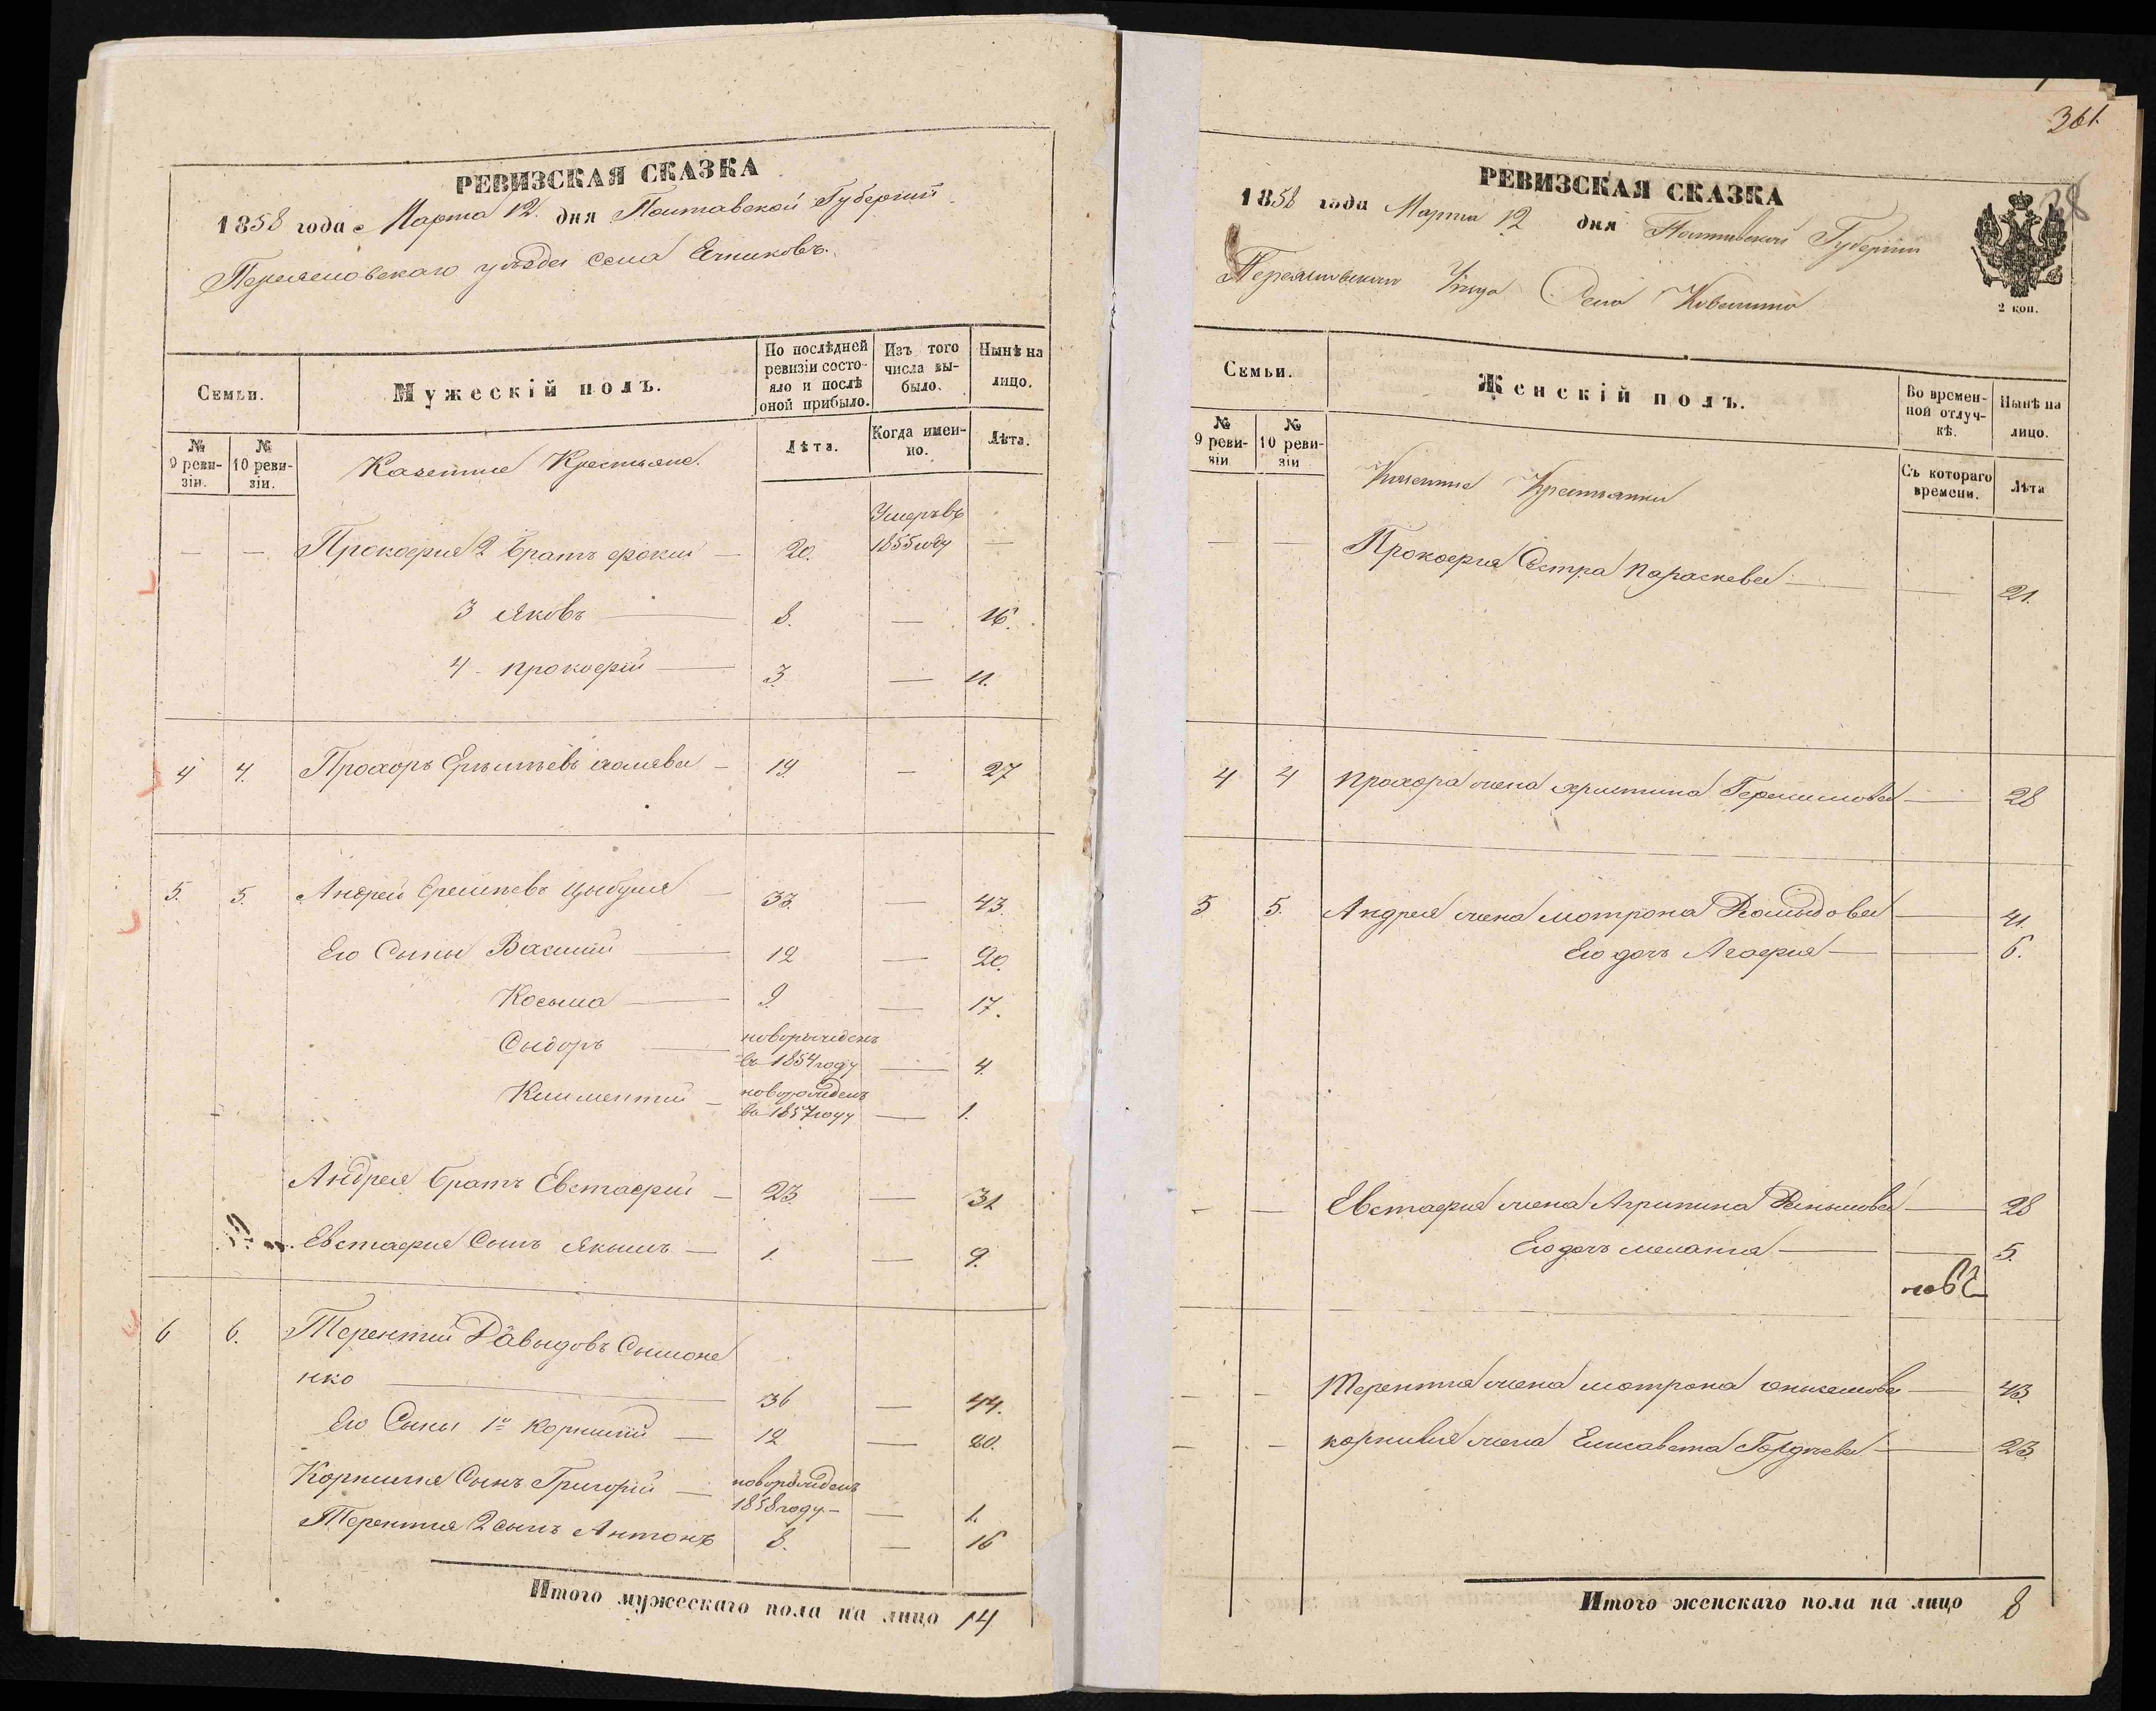 РЕВИЗСКАЯ СКАЗКА
1858 года Марта 12. дня Полтавской Губернии
Переяславскаго уѣзда села
Семьи.
Мужескій полъ.
По послѣдней ревизіи состояло и послѣ оной прибыло.
Изъ того числа выбыло.
Нынѣ на лицо.
№ 9 ревизіи.
№ 10 ревизіи.
Казенные Крестьяне.
Лѣта.
Когда именно.
Лѣта.
— — Прокофия 2 братъ фокий — 20. Умеръ въ 1855 году —
3 Яковъ — 8. — 16.
4 - прокофій — 3. — 11.
4 4. Прохоръ — 19. — 27
5. 5. Андрей Цыбуля — 33. — 43.
Его Сыны Василий — 12 — 20.
Косьма — 9. — 17.
Сыдоръ — новорожденъ въ 1854 году — 4.
Климентий — новорожденъ въ 1857 году — 1.
Андрея братъ Евстафий — 23. — 31
Евстафия Сынъ Якымъ — 1. — 9.
6 6. Терентий Давыдовъ Сымоне
нко — 36 — 44.
Его Сыны 1й Корнилий — 12 — 20.
Корнилия Сынъ Григорій — новорожденъ 1858 году — — 1.
Терентия 2 сынъ Антонъ 8. — 16
Итого мужескаго пола на лицо 14
361.
38
РЕВИЗСКАЯ СКАЗКА
1858 года Марта 12 дня Полтавской Губернии
2 коп.
Семьи.
Женскій полъ.
Во временной отлучкѣ.
Нынѣ на лицо.
№ 9 ревизіи
№ 10 ревизіи
Казенные Крестьянки
Съ котораго времени.
Лѣта
— — Прокофия Сестра Параскева — — 21.
4 4 Прохора жена христина Герасимова — 28
5 5. Андрея жена мотрона — 41.
Его дочь Агафия — — 6.
- — Евстафия жена Агрипина — 28
Его дочь мелания — — 5.
- - Терентия жена мотрона — 43.
- - корнилия жена Елисавета Гордѣева — 23.
Итого женскаго пола на лицо 8